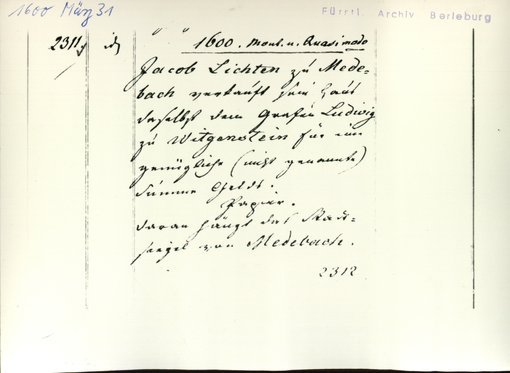 1600 März 31
Fürstl. Archiv Berleburg
2311
" " 1600. Mont. n. Quasimodo
Jacob Lichten zu Mede-
bach verkauft sein Haus
daselbst dem Grafen Ludwig
zu Witgenstein für eine
genügliche (nicht genannte)
Summe Geldt.
Papier.
daran hängt das Stadt-
siegel von Medebach.
2312